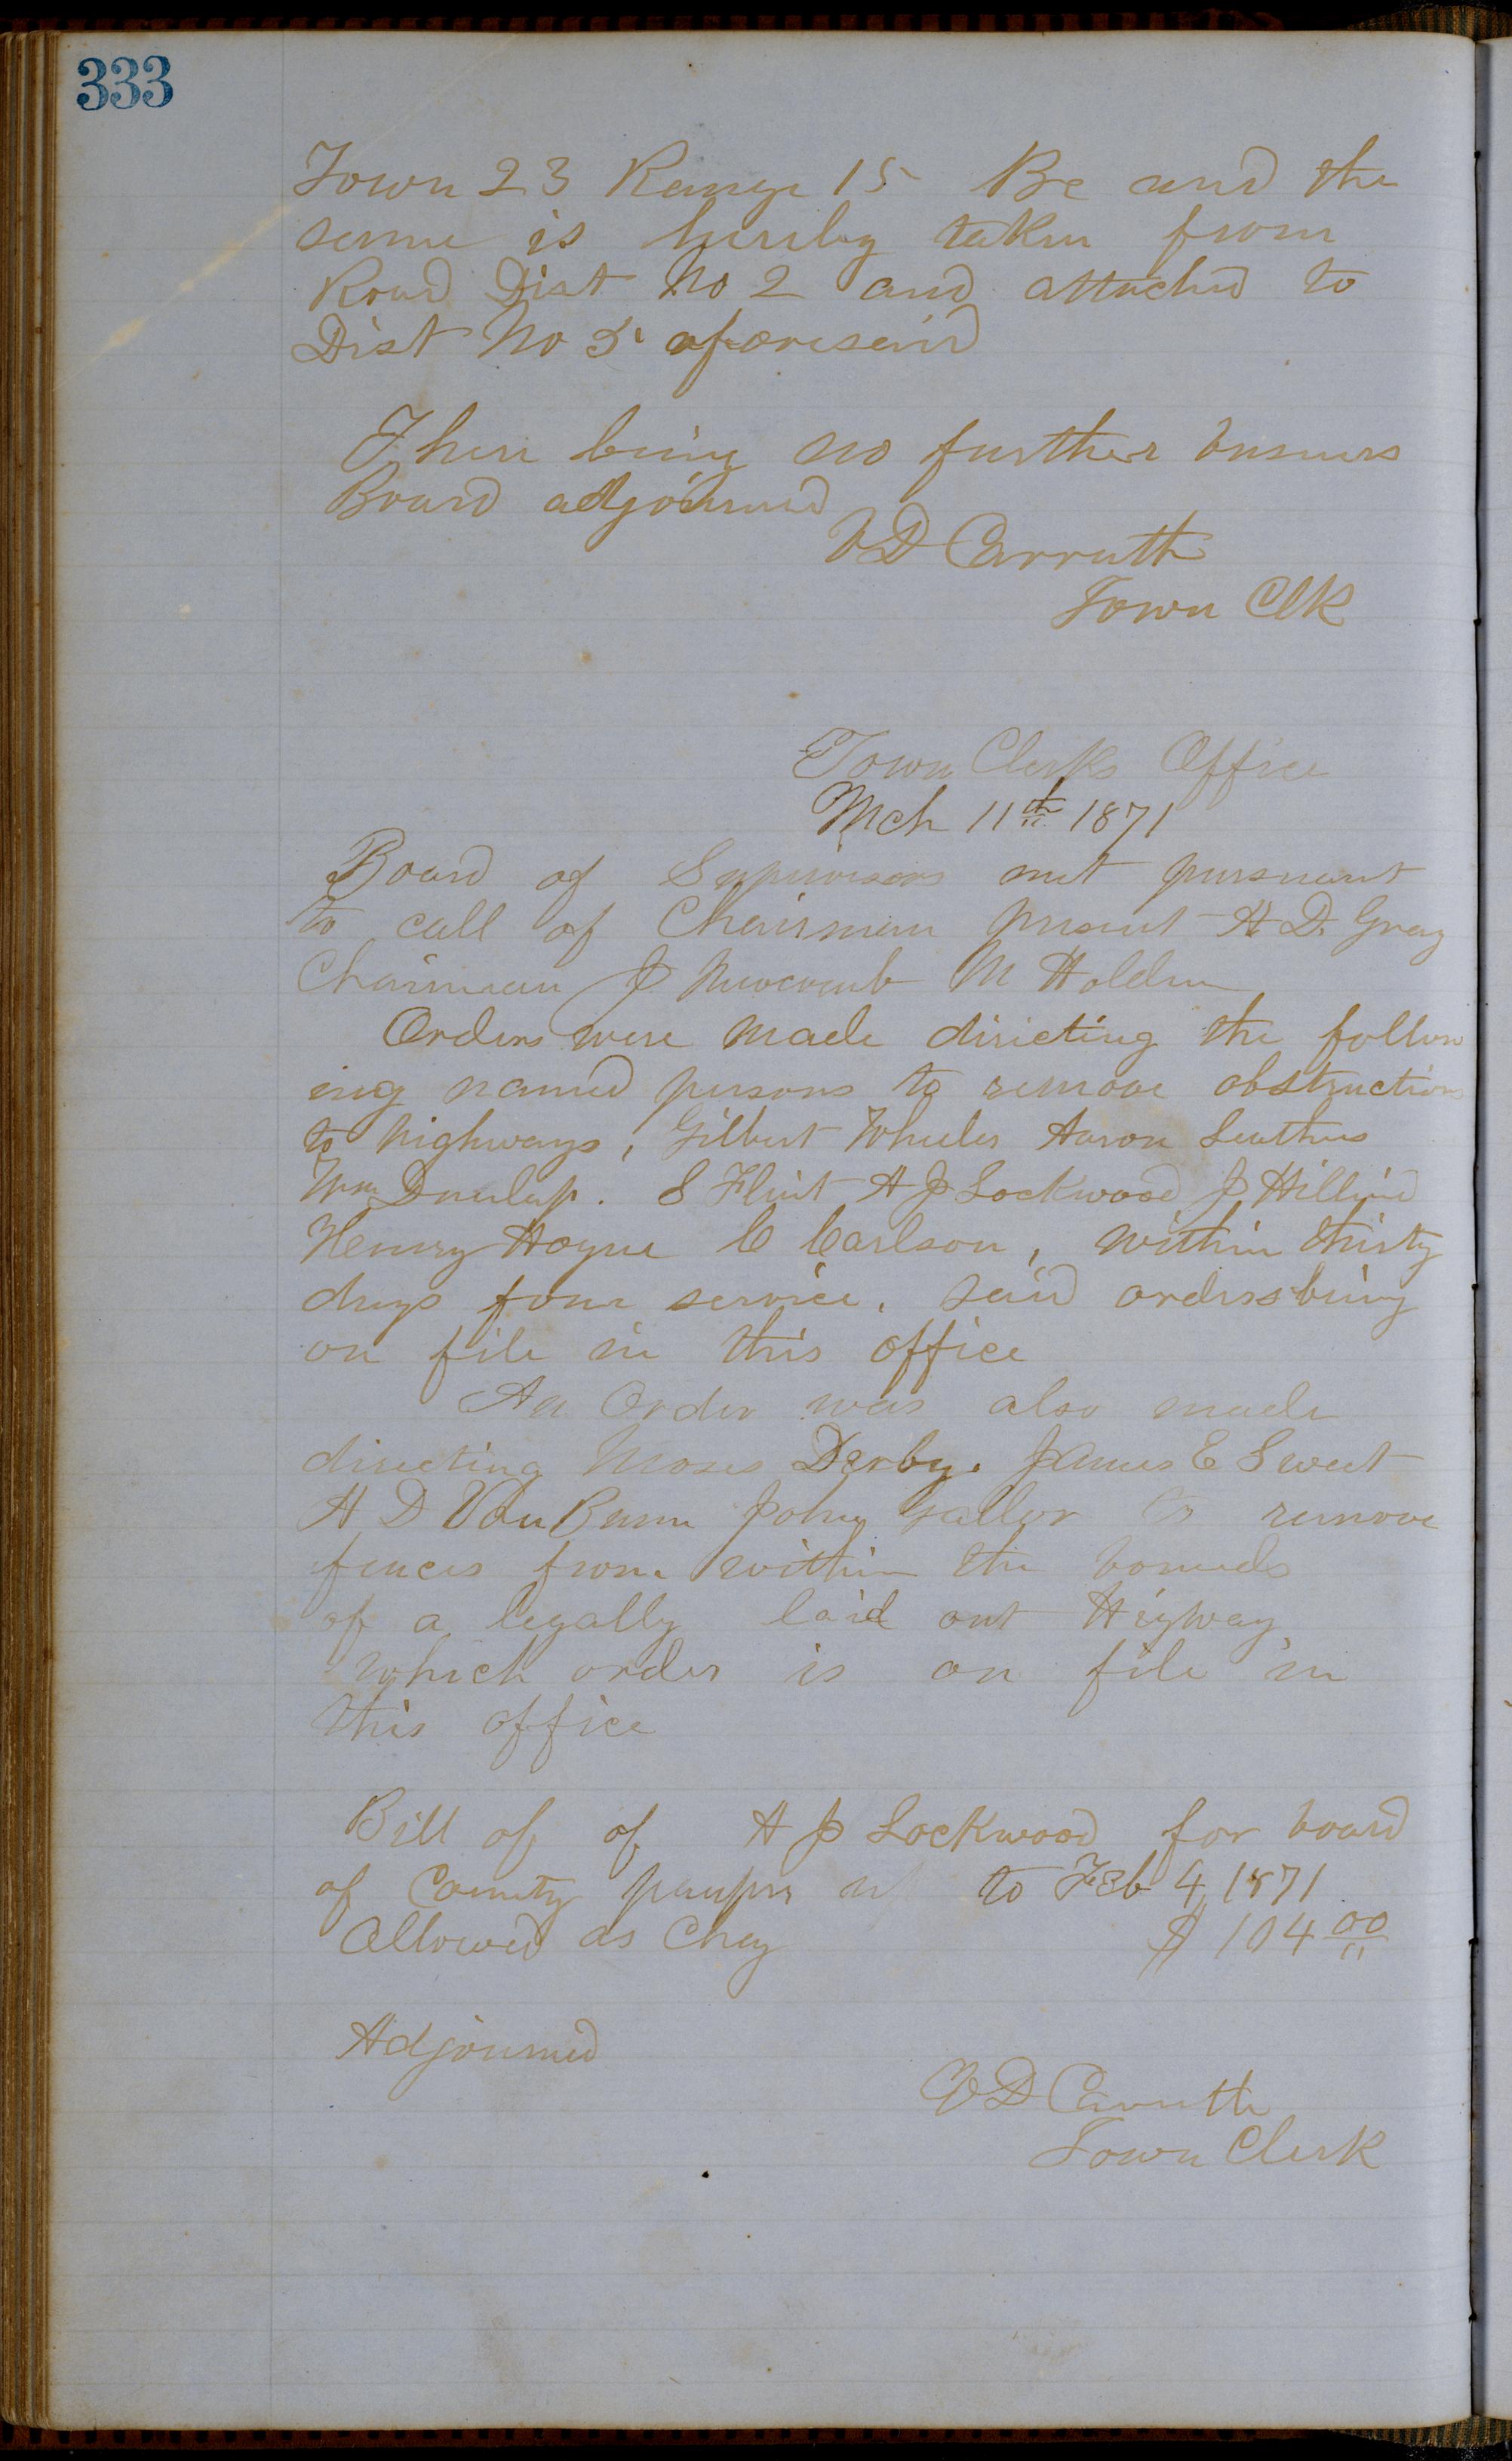 333
Town 23 Range 15 Be and the
same is hereby taken from
Road Dist No 2 and attached to
Dist No 5 aforesaid
There being no further business
Board adjourned
V D Carruth
Town Clk
Town Clerks Office
Mch 11th 1871
Board of Supervisors met pursuant
to call of Chairman present H D. Gray
Chairman J Newcomb M Holden
Orders were made directing the follow
ing named persons to remove obstructions
to highways, Gilbert Wheeler Aaron Leathers
Wm Dunlap. S Flint A J Lockwood J Hilliard
Henry Hoyne C Carlson, within thirty
days from service, said orders being
on file in this office
An Order was also made
directing Moses Derby. James E Sweet
H D Van Buren John to remove
fences from within the bounds
of a legally laid out Higway
which order is on file in
this office
Bill of of A J Lockwood for board
of County paupers to Feb 4 1871
Allowed as Chg $ 104 00
Adjourned
V D Carruth
Town Clerk